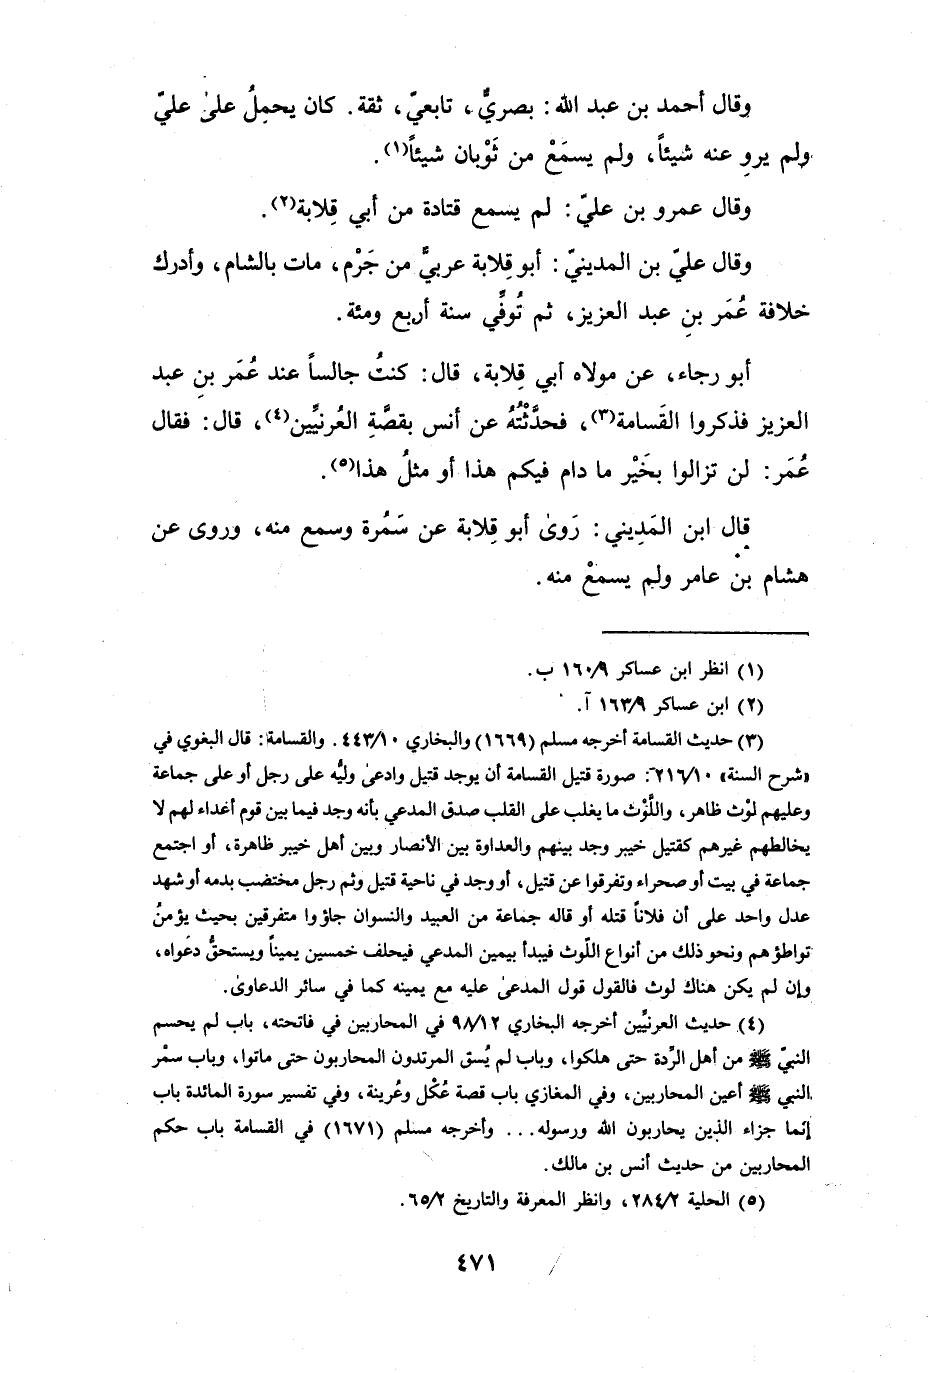 وقال أحمد بن عبد الله: بصريٌّ، تابعيّ، ثقة. كان يحمِلُ علىٰ عليّ
ولم يروِ عنه شيئاً، ولم يسمَعْ من ثَوْبان شيئاً(١).
وقال عمرو بن عليّ: لم يسمع قتادة من أبي قِلابة(٢).
وقال عليّ بن المدينيّ: أبو قِلابة عربيٌّ من جَرْم، مات بالشام، وأدرك
خلافة عُمَر بنِ عبد العزيز، ثم تُوفِّي سنة أربع ومئة.
أبو رجاء، عن مولاه أبي قِلابة، قال: كنتُ جالساً عند عُمَر بنِ عبد
العزيز فذكروا القَسامة(٣)، فحدَّثْتُهُ عن أنس بقصَّةِ العُرنيِّين(٤)، قال: فقال
عُمَر: لن تزالوا بخَيْر ما دام فيكم هذا أو مثلُ هذا(٥).
قال ابن المَدِيني: رَوىٰ أبو قِلابة عن سَمُرة وسمع منه، وروى عن
هشام بن عامر ولم يسمعْ منه.
(١) انظر ابن عساكر ١٦٠/٩ ب.
(٢) ابن عساكر ١٦٣/٩ آ.
(٣) حديث القسامة أخرجه مسلم (١٦٦٩) والبخاري ٤٤٣/١٠. والقسامة: قال البغوي في
«شرح السنة» ٢١٦/١٠: صورة قتيل القسامة أن يوجد قتيل وادعىٰ وليُّه على رجل أو على جماعة
وعليهم لوْث ظاهر، واللَّوْث ما يغلب على القلب صدق المدعي بأنه وجد فيما بين قوم أعداء لهم لا
يخالطهم غيرهم كقتيل خيبر وجد بينهم والعداوة بين الأنصار وبين أهل خيبر ظاهرة، أو اجتمع
جماعة في بيت أو صحراء وتفرقوا عن قتيل، أو وجد في ناحية قتيل وثم رجل مختضب بدمه أو شهد
عدل واحد على أن فلاناً قتله أو قاله جماعة من العبيد والنسوان جاؤوا متفرقين بحيث يؤمنُ
تواطؤهم ونحو ذلك من أنواع اللّوث فيبدأ بيمين المدعي فيحلف خمسين يميناً ويستحقُّ دعواه،
وإن لم يكن هناك لوث فالقول قول المدعىٰ عليه مع يمينه كما في سائر الدعاوىٰ.
(٤) حديث العرنيِّين أخرجه البخاري ٩٨/١٢ في المحاربين في فاتحته، باب لم يحسم
النبيّ ﷺ من أهل الرِّدة حتى هلكوا، وباب لم يُسق المرتدون المحاربون حتى ماتوا، وباب سمْر
النبي ﷺ أعين المحاربين، وفي المغازي باب قصة عُكْل وعُرينة، وفي تفسير سورة المائدة باب
إنما جزاء الذين يحاربون الله ورسوله... وأخرجه مسلم (١٦٧١) في القسامة باب حكم
المحاربين من حديث أنس بن مالك.
(٥) الحلية ٢٨٤/٢، وانظر المعرفة والتاريخ ٦٥/٢.
٤٧١